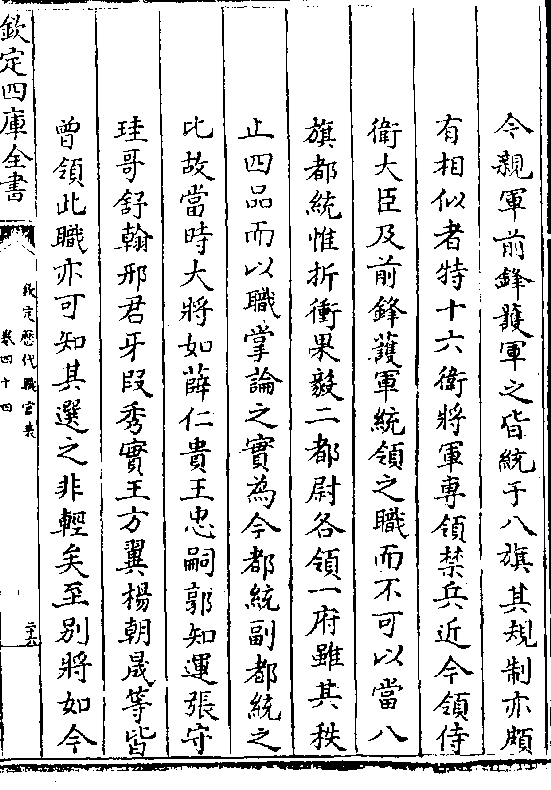 今親軍前鋒䕶軍之皆統于八旗其規制亦頗
有相似者特十六衛將軍専領禁兵近今領侍
衛大臣及前鋒䕶軍統領之職而不可以當八
旗都統惟折衝果毅二都尉各領一府雖其秩
止四品而以職掌論之實為今都統副都統之
比故當時大將如薛仁貴王忠嗣郭知運張守
珪哥舒翰邢君牙段秀實王方翼楊朝晟等皆
曾領此職亦可知其選之非輕矣至别將如今
欽定四庫全書
欽定歷代職官表
卷四十四
二十六